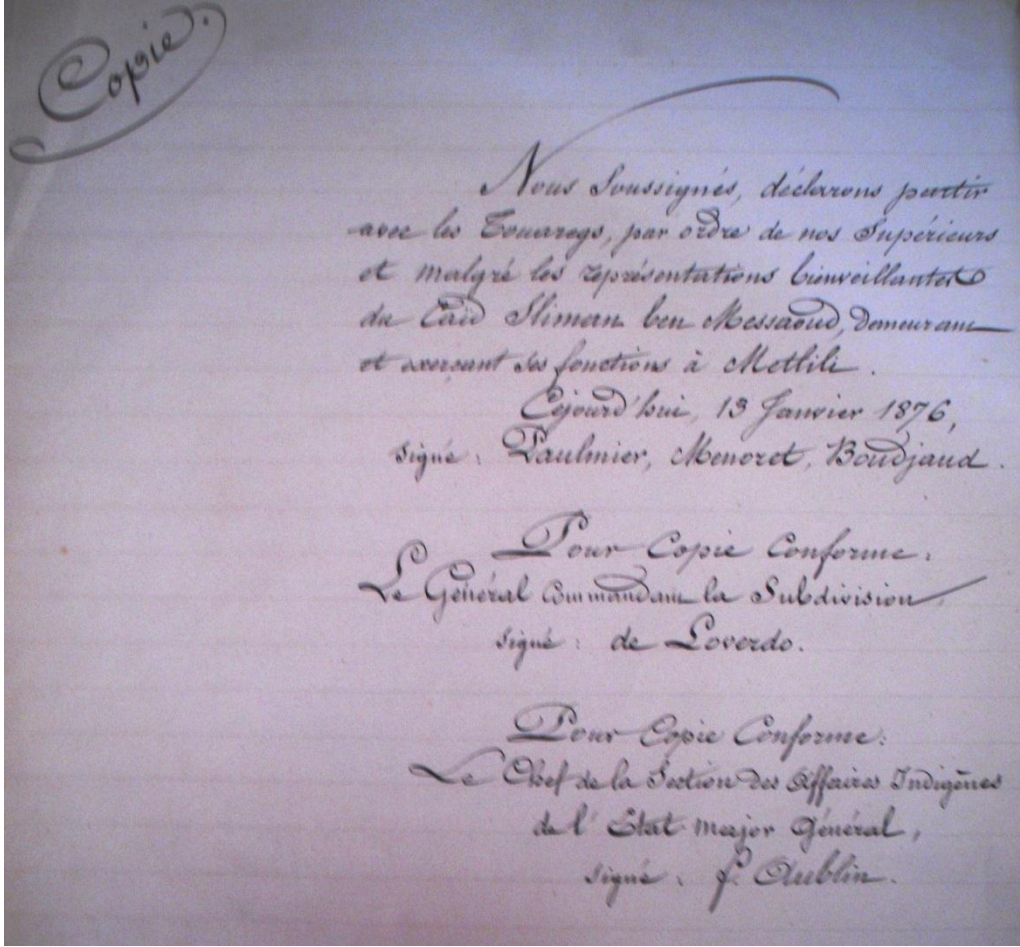 Copie.
Nous Soussignés, déclarons partir
avec les Touaregs, par ordre de nos Supérieurs
et malgré les représentations bienveillantes
du Caïd Sliman ben Messaoud, demeurant
et exerçant ses fonctions à Metlili.
Cejourd'hui, 13 Janvier 1876,
signé : Paulmier, Menoret, Boudjaud.
Pour Copie Conforme :
Le Général Commandant la Subdivision,
signé : de Loverdo.
Pour Copie Conforme :
Le Chef de la Section des Affaires Indigènes
de l'Etat major Général,
signé : f. Aublin.